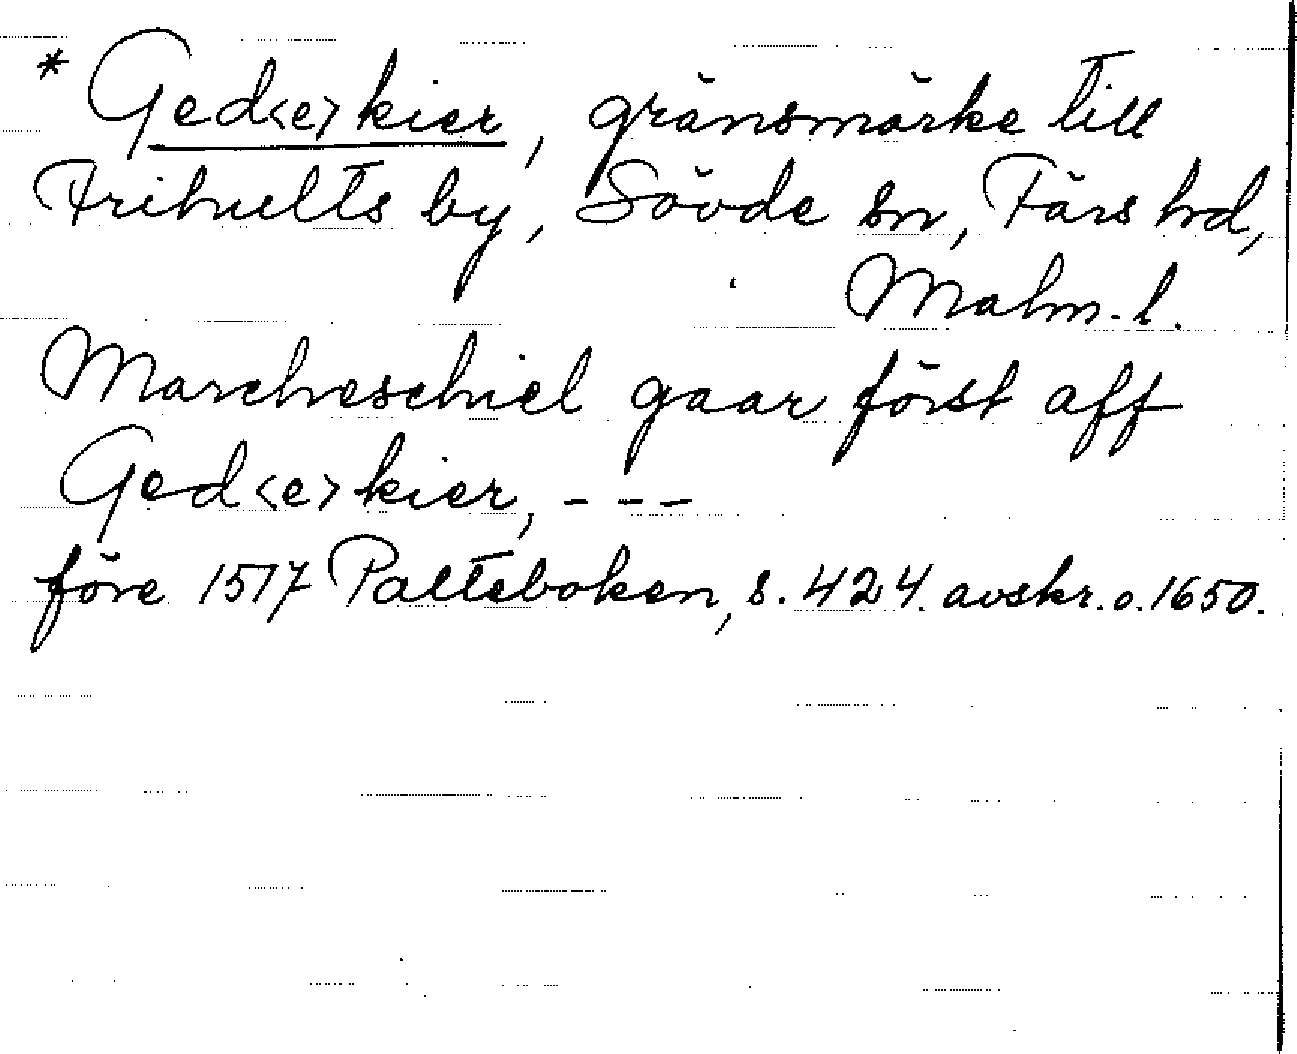 * Ged<e>kier, gränsmärke till
Frihults by, Sövde sn, Färs hd,
Malm. l.
Marcheschiel gaar först aff
Ged<e>kier, - - -
före 1517 Palteboken, s. 424. avskr. o. 1650.